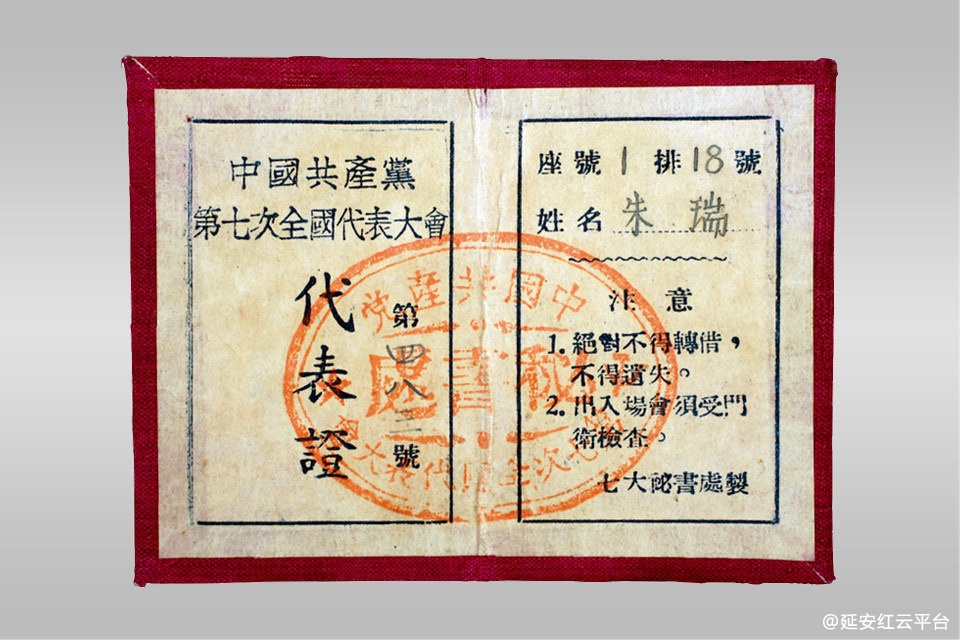 中國共產黨
第七次全國代表大會
代表證
第四八三號
座號1排18號
姓名朱瑞
注意
1.絕對不得轉借，
不得遺失。
2.出入場會須受門
衛檢查。
七大祕書處製
中國共産党
秘書處
@延安红云平台